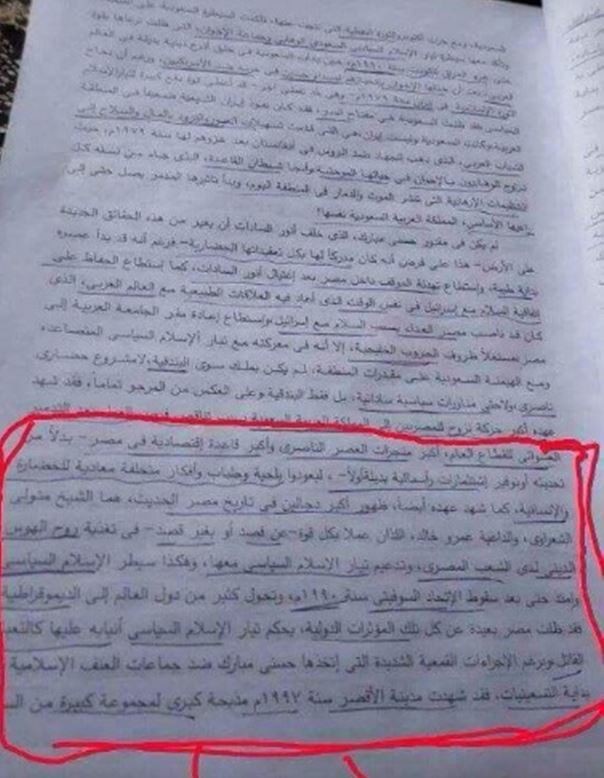 السعودية، ومع حرب أكتوبر والثورة النفطية التى نتجت عنها، تأكدت السيطرة السعودية على
وتأكد معها سيطرة تيار الإسلام السياسى السعودى الوهابى وجماعة الإخوان
حتى غزو العراق للكويت سنة ١٩٩٠م، حين بدأت السعودية فى خلق أذرع دينية بديلة فى العالم
العربى، بعد أن خذلها الإخوان
الثورة الإسلامية فى إيران سنة ١٩٧٩م
السياسى فقد ظلت السعودية هى مفتاح
العربية وكانت السعودية وليست إيران هى التى قدمت تسهيلات
الشباب العربى، الذى ذهب للجهاد ضد الروس فى أفغانستان بعد غزوهم لها سنة ١٩٧٩م، حيث
تزاوج الوهابيون بالإخوان فى حياتها الموحشة وأنجبا شيطان القاعدة، الذى جاء من نسله كل
التنظيمات الإرهابية التى تنشر الموت والدمار فى المنطقة اليوم، وبدأ تأثيرها المدمر يصل حتى إلى
راعيها الأساسى، المملكة العربية السعودية نفسها!
لم يكن فى مقدور حسنى مبارك، الذى خلف أنور السادات أن يغير من هذه الحقائق الجديدة
على الأرض– هذا على فرض أنه كان مدركًا لها بكل تعقيداتها الحضارية– فرغم أنه قد بدأ عصره
بداية طيبة، واستطاع تهدئة الموقف داخل مصر بعد إغتيال أنور السادات، كما إستطاع الحفاظ على
إتفاقية السلام مع إسرائيل فى نفس الوقت الذى أعاد فيه العلاقات الطبيعية مع العالم العربى، الذى
كان قد ناصب مصر العداء بسبب السلام مع إسرائيل وإستطاع إعادة مقر الجامعة العربية إلى
مصر مستغلاً ظروف الحروب الخليجية، إلا أنه فى معركته مع تيار الإسلام السياسى المتصاعد،
ومع الهيمنة السعودية على مقدرات المنطقة، لم يكن يملك سوى البندقية، لا مشروع حضارى
ناصرى، ولا حتى مناورات سياسية ساداتية، بل فقط البندقية وعلى العكس من المرجو تماماً، فقد شهد
عهده أكبر حركة نزوح للمصريين إلى المملكة العربية السعودية
العشوائى للقطاع العام، أكبر منجزات العصر الناصرى وأكبر قاعدة إقتصادية فى مصر– بدلاً من
تحديثه أو توفير إستثمارات رأسمالية بديلة أولاً– ، ليعودوا بلحية وجلباب وأفكار متخلفة معادية للحضارة
والإنسانية، كما شهد عهده أيضاً، ظهور أكبر دجالين فى تاريخ مصر الحديث، هما الشيخ متولى
الشعراوى، والداعية عمرو خالد، اللذان عملا بكل قوة– عن قصد أو بغير قصد– فى تغذية روح الهوس
الدينى لدى الشعب المصرى، وتدعيم تيار الإسلام السياسى معها، وهكذا سيطر الإسلام السياسى
وإمتد حتى بعد سقوط الإتحاد السوفيتى سنة ١٩٩٠م، وتحول كثير من دول العالم إلى الديموقراطية
فقد ظلت مصر بعيدة عن كل تلك المؤثرات الدولية، يحكم تيار الإسلام السياسى أنيابه عليها
القاتل وبرغم الإجراءات القمعية الشديدة التى إتخذها حسنى مبارك ضد جماعات العنف الإسلامية
بداية التسعينيات، فقد شهدت مدينة الأقصر سنة ١٩٩٧م مذبحة كبرى لمجموعة كبيرة من